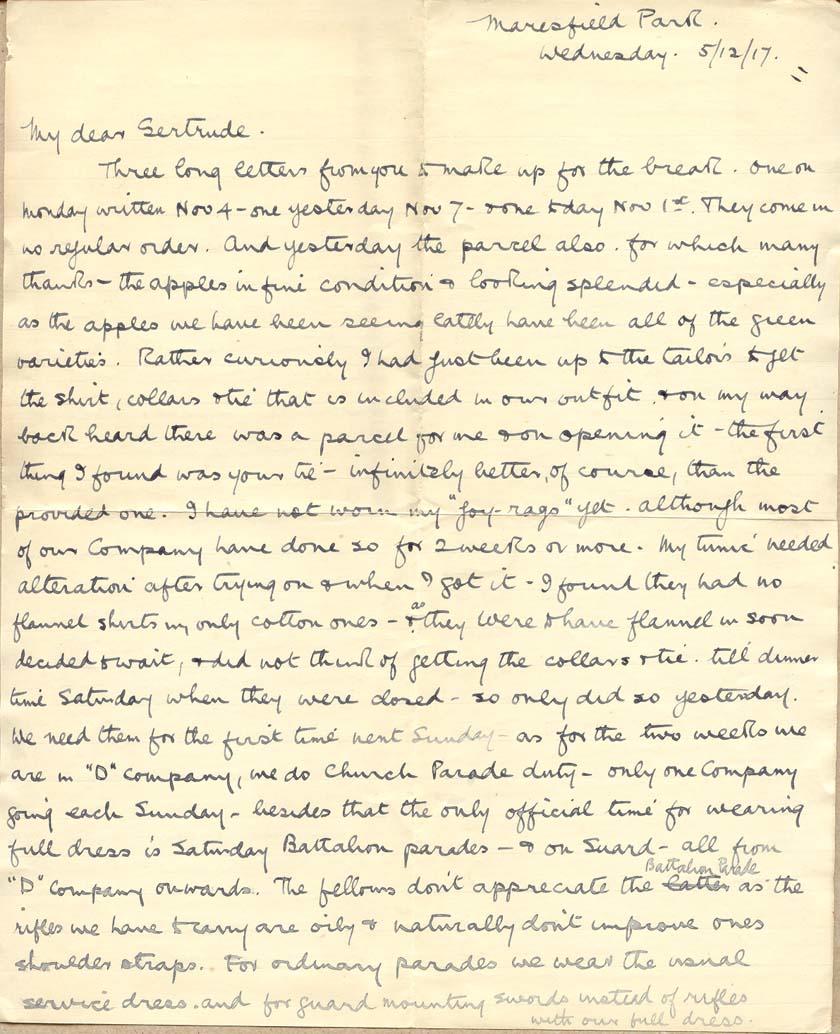 Maresfield Park.
Wednesday. 5/12/17.
My dear Gertrude.
Three long letters from you to make up for the break. One on
Monday written Nov 4 - one yesterday Nov 7 - & one today Nov 1st. They come in
no regular order. And yesterday the parcel also. for which many
thanks - the apples in fine condition & looking splendid - especially
as the apples we have been seeing lately have been all of the green
varieties. Rather curiously I had just been up to the tailors to get
the shirt, collars & tie that is included in our outfit. & on my way
back heard there was a parcel for me & on opening it - the first
thing I found was your tie - infinitely better, of course, than the
provided one. I have not worn my "joy-rags" yet. although most
of our Company have done so for 2 weeks or more. My tunic needed
alteration after trying on & when I got it - I found they had no
flannel shirts in, only cotton ones - & as they were to have flannel in soon
decided to wait, & did not think of getting the collars & tie. till dinner
time Saturday when they were closed - so only did so yesterday.
We need them for the first time next Sunday - as for the two weeks we
are in "D" Company, we do Church Parade duty - only one Company
going each Sunday - besides that the only official time for wearing
full dress is Saturday Battalion parades - & on Guard - all from
"D" Company onwards. The fellows don't appreciate the latter Battalion Parade as the
rifles we have to carry are oily & naturally don't improve ones
shoulder straps. For ordinary parades we wear the usual
service dress. and for guard mounting swords instead of rifles
with our full dress.